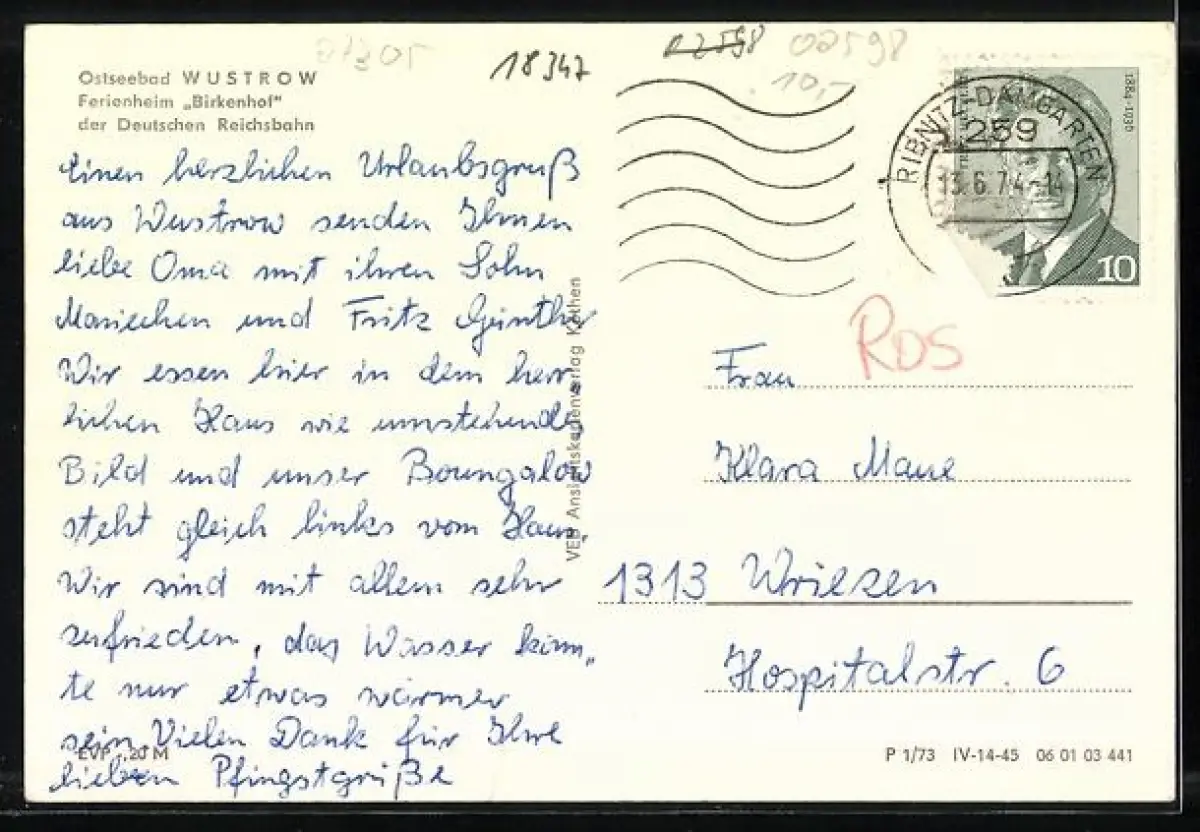 01305
18347
02598
02598
10,-
Ostseebad WUSTROW
Ferienheim „Birkenhof"
der Deutschen Reichsbahn
Einen herzlichen Urlaubsgruß
aus Wustrow senden Ihnen
liebe Oma mit ihren Sohn
Mariechen und Fritz Günther
Wir essen hier in dem herr
lichen Haus wie umstehende
Bild und unser Boungalow
steht gleich links vom Haus.
Wir sind mit allem sehr
zufrieden, das Wasser könn„
te nur etwas wärmer
sein Vielen Dank für Ihre
lieben Pfingstgrüße
EVP -,20 M
VEB Ansichtskartenverlag Köthen
RIBNITZ-DAMGARTEN
259
13.6.74-14
1884-1936
10
Ros
Frau
Klara Maue
1313 Wriezen
Hospitalstr. 6
P 1/73 IV-14-45 06 01 03 441